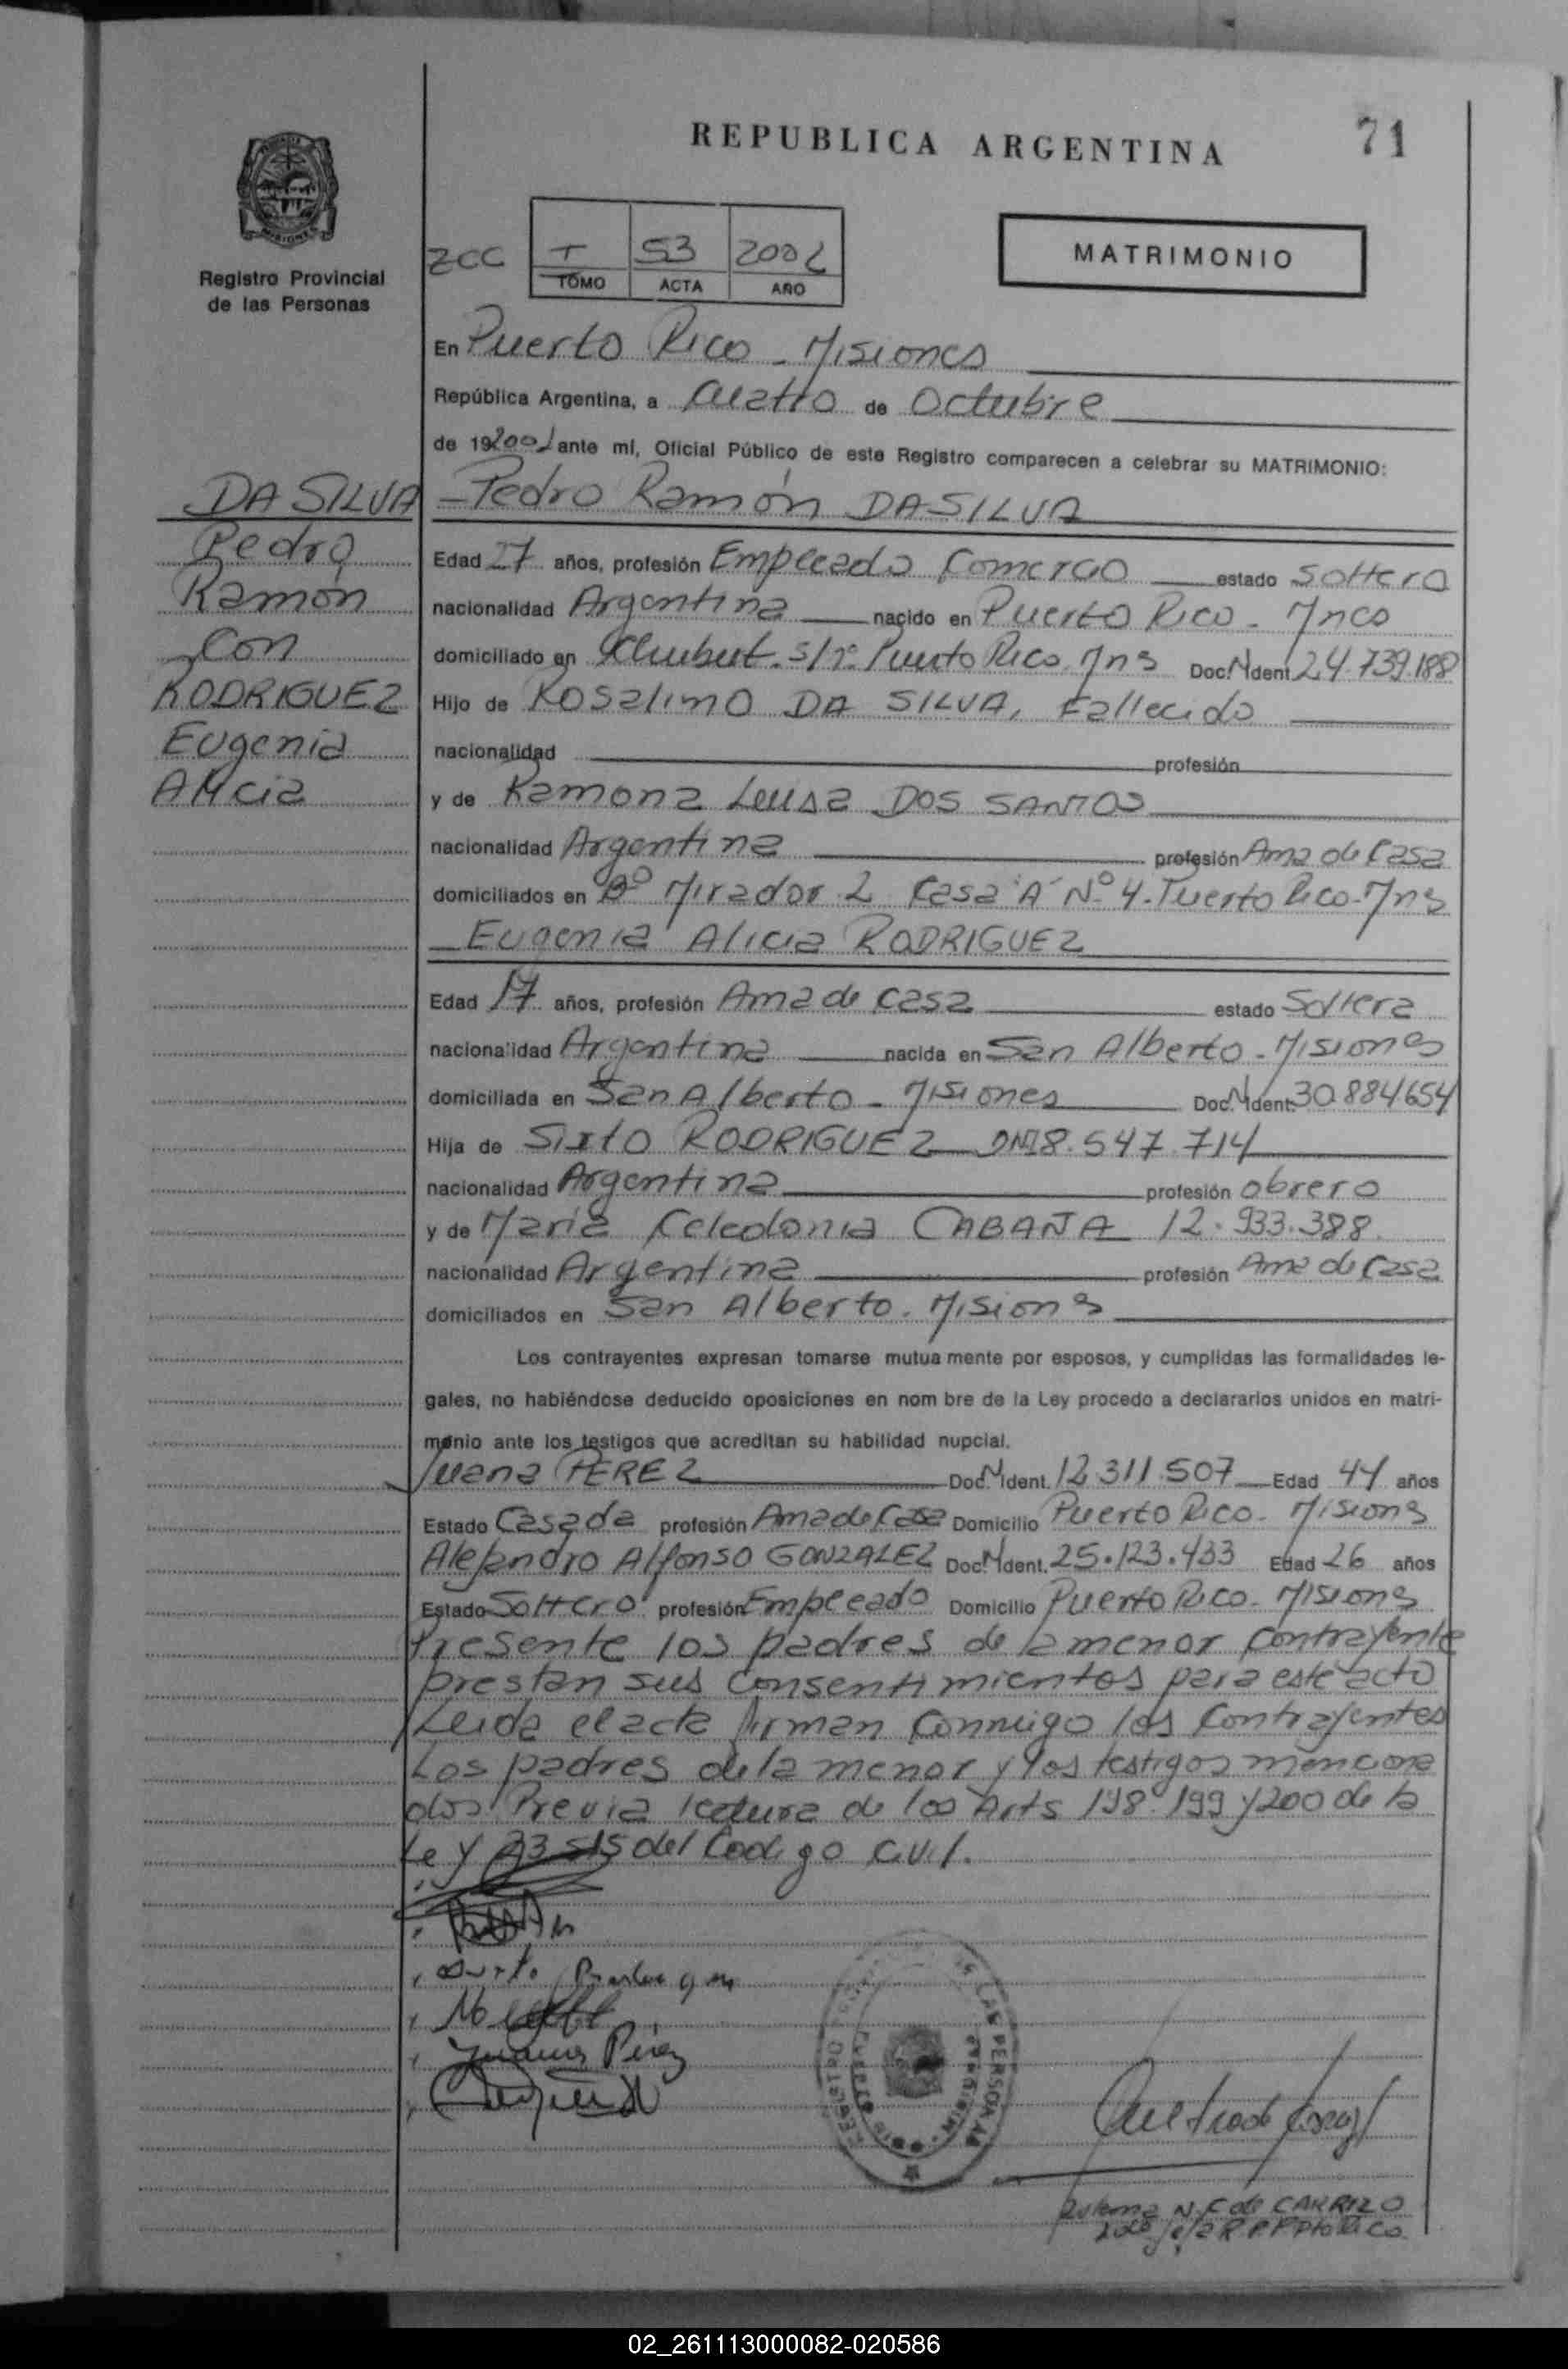 REPUBLICA ARGENTINA
71
Registro Provincial
de las Personas
ZCC
T 53 2002
TOMO ACTA AÑO
MATRIMONIO
En Puerto Rico - Misiones
República Argentina, a cuatro de Octubre
de 19 2002 ante mí, Oficial Público de este Registro comparecen a celebrar su MATRIMONIO:
DA SILVA
Pedro
Ramón
Con
RODRIGUEZ
Eugenia
Alicia
Pedro Ramón DA SILVA
Edad 27 años, profesión Empleado Comercio estado soltero
nacionalidad Argentina nacido en Puerto Rico - Mnes
domiciliado en Schubert s/nº Puerto Rico Mns Doc. N Ident. 24.739.188
Hijo de Rosalino DA SILVA, Fallecido
nacionalidad profesión
y de Ramona Luisa DOS SANTOS
nacionalidad Argentina profesión Ama de Casa
domiciliados en Bº Mirador 2 Casa "A" Nº 4 - Puerto Rico - Mns
Eugenia Alicia RODRIGUEZ
Edad 17 años, profesión Ama de casa estado Soltera
nacionalidad Argentina nacida en San Alberto - Misiones
domiciliada en San Alberto - Misiones Doc. N Ident. 30.884.654
Hija de Sixto RODRIGUEZ DNI 8.547.714
nacionalidad Argentina profesión obrero
y de Maria Celedonia CABAÑA 12.933.388
nacionalidad Argentina profesión Ama de Casa
domiciliados en San Alberto - Misiones
Los contrayentes expresan tomarse mutua mente por esposos, y cumplidas las formalidades le-
gales, no habiéndose deducido oposiciones en nom bre de la Ley procedo a declararlos unidos en matri-
monio ante los testigos que acreditan su habilidad nupcial.
Juana PEREZ Doc. N Ident. 12.311.507 Edad 44 años
Estado Casada profesión Ama de Casa Domicilio Puerto Rico - Misiones
Alejandro Alfonso GONZALEZ Doc. N Ident. 25.123.433 Edad 26 años
Estado Soltero profesión Empleado Domicilio Puerto Rico - Misiones
Presente los padres de la menor contrayente
prestan sus consentimientos para este acto
Leida el acta firman conmigo los contrayentes
Los padres de la menor y los testigos menciona
dos Previa lectura de los Arts 198 199 y 200 de la
Ley 23515 del Codigo Civil.
Juana Pérez
REGISTRO DE LAS PERSONAS
PUERTO RICO - MISIONES
N. F. de CARRIZO